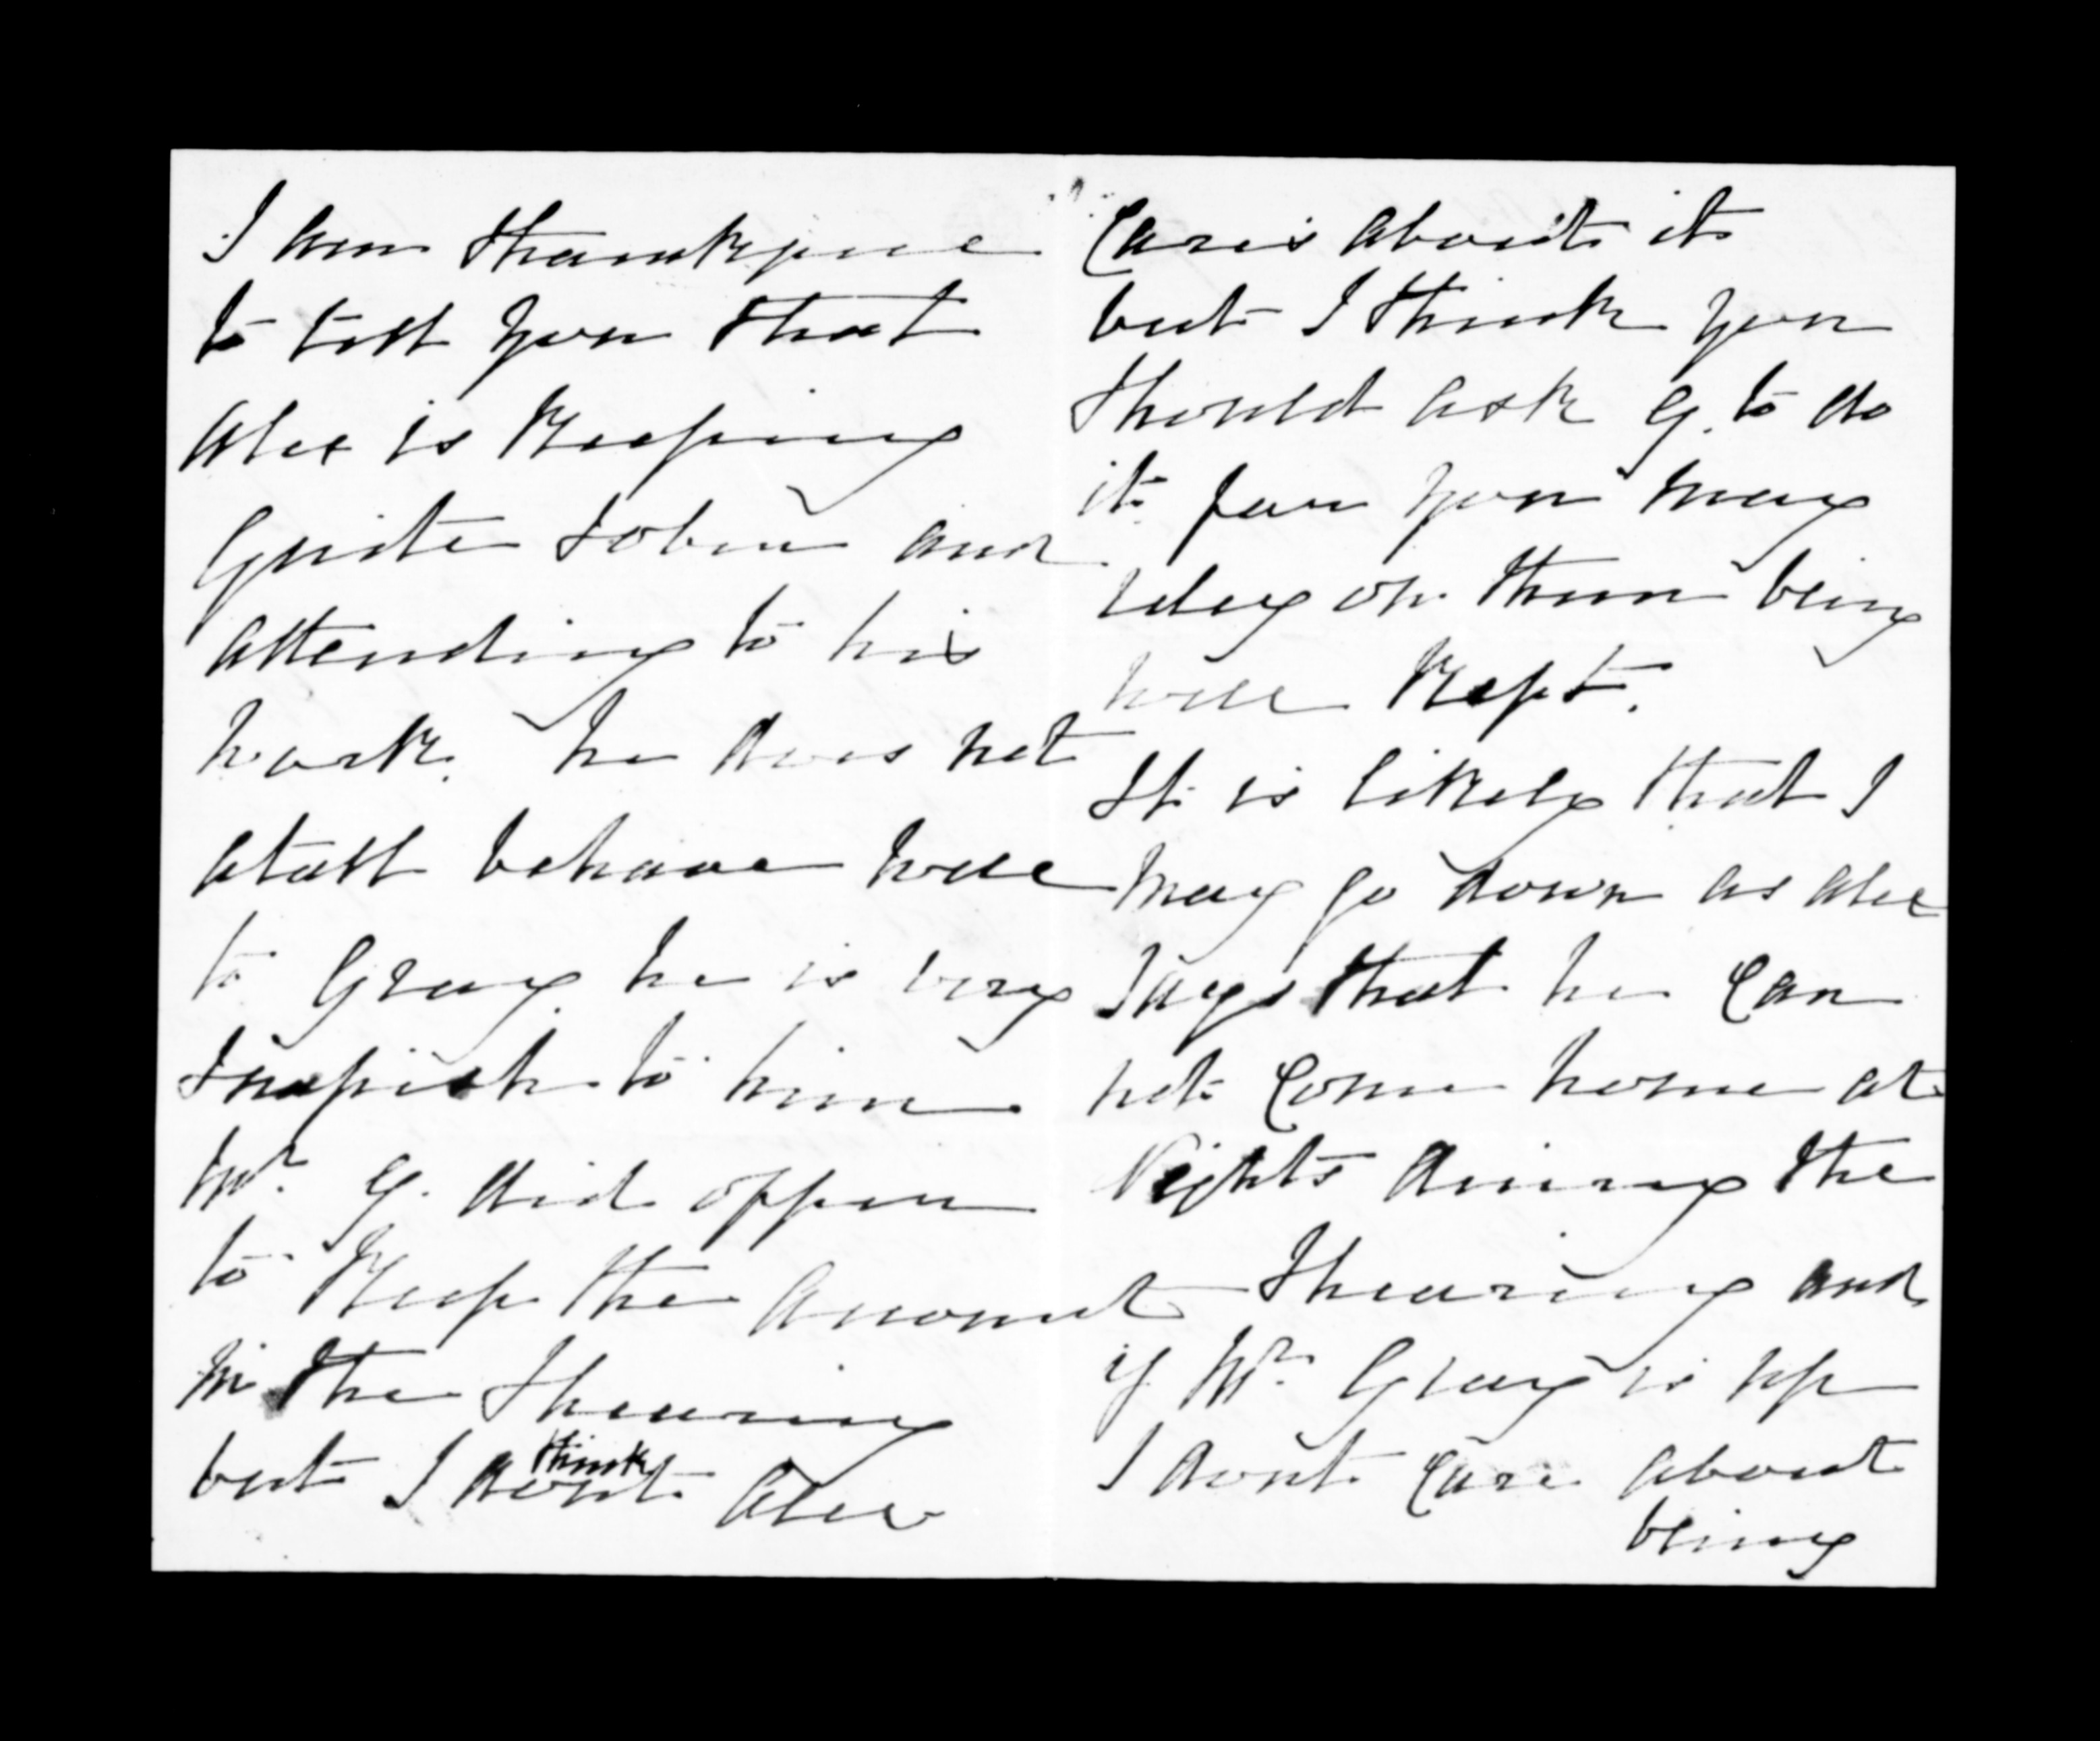 I am thankful
to tell you that
Alex is keeping
Quite sober and
attending to his
work. he does not
atall behave well
to Gray he is very
snapish to him
Mr. G. did offer
to keep the account
in the shearing
but I dont think Alex
Cares about it
but I think you
should ask G. to do
it for you may
rely on them being
well kept.
It is likely that I
may go down as Alex
says that he Can
not Come home at
Nights during the
shearing and
if Mr. Gray is up
I dont Care about
being